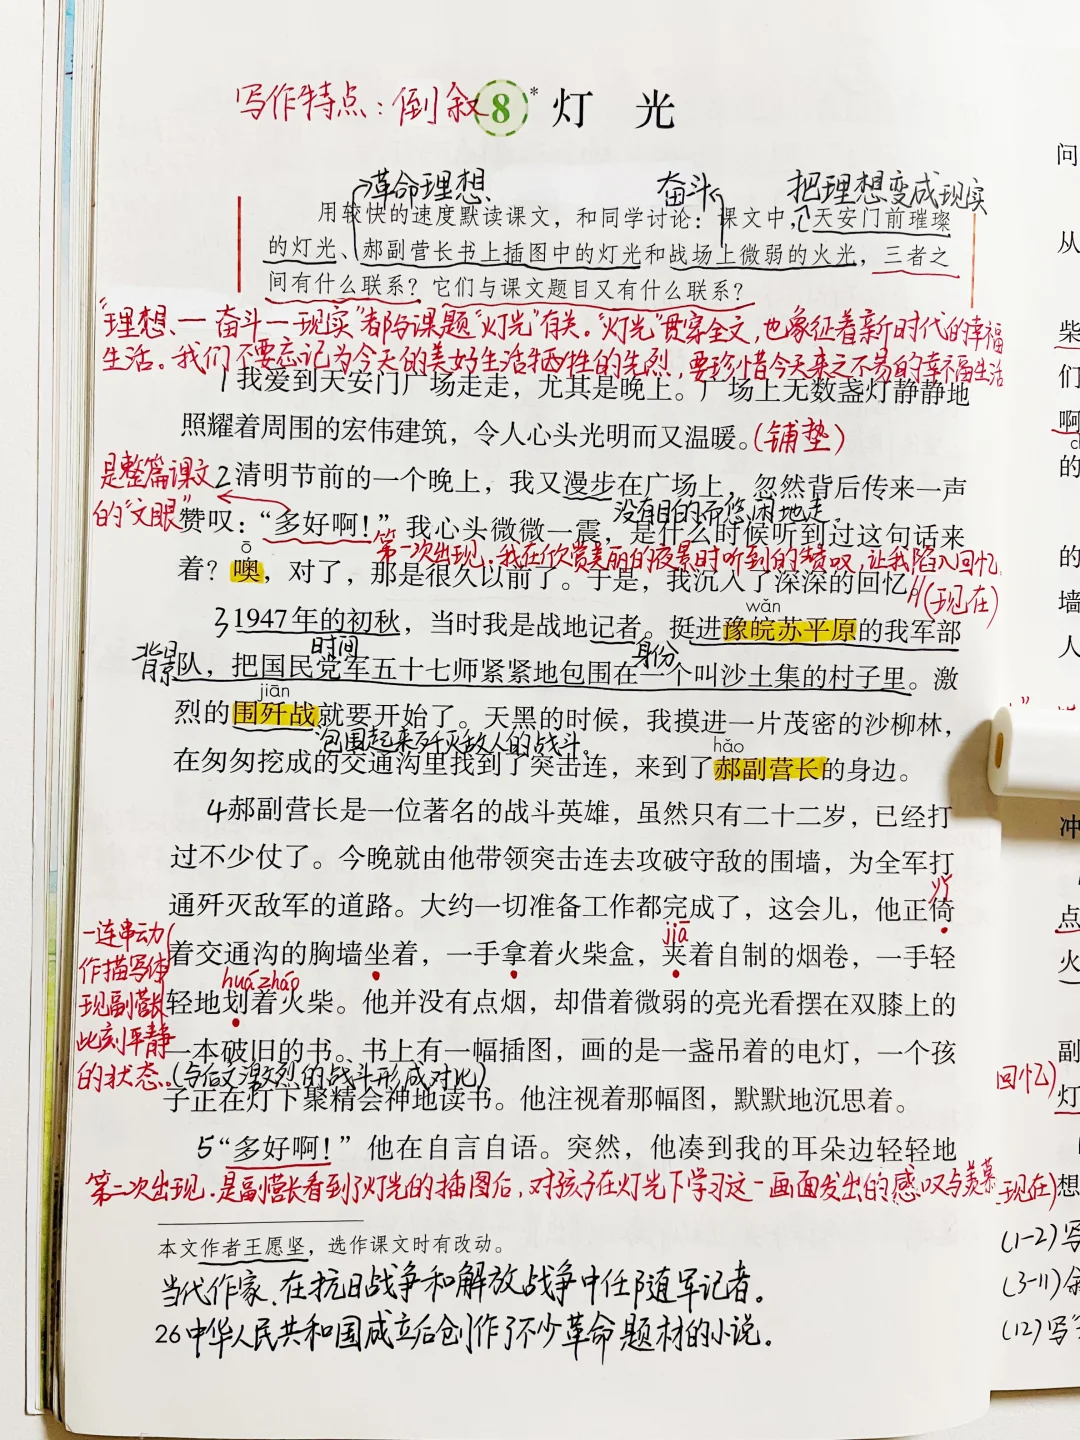 写作特点：倒叙 8* 灯 光
革命理想、 奋斗 把理想变成现实
用较快的速度默读课文，和同学讨论：课文中，天安门前璀璨
的灯光、郝副营长书上插图中的灯光和战场上微弱的火光，三者之
间有什么联系？它们与课文题目又有什么联系？
“理想、一奋斗一现实”都与课题“灯光”有关。“灯光”贯穿全文，也象征着新时代的幸福
生活。我们不要忘记为今天的美好生活牺牲的先烈，要珍惜今天来之不易的幸福生活
1我爱到天安门广场走走，尤其是晚上。广场上无数盏灯静静地
照耀着周围的宏伟建筑，令人心头光明而又温暖。（铺垫）
是整篇课文
的“文眼”
2清明节前的一个晚上，我又漫步在广场上，忽然背后传来一声
没有目的而悠闲地走.
赞叹：“多好啊！”我心头微微一震，是什么时候听到过这句话来
第一次出现，我在欣赏美丽的夜景时听到的赞叹，让我陷入回忆.
ō
着？噢，对了，那是很久以前了。于是，我沉入了深深的回忆。//（现在）
wǎn
3 1947年的初秋，当时我是战地记者。挺进豫皖苏平原的我军部
背景 时间 身份
队，把国民党军五十七师紧紧地包围在一个叫沙土集的村子里。激
jiān
烈的围歼战就要开始了。天黑的时候，我摸进一片茂密的沙柳林，
包围起来歼灭敌人的战斗。
hǎo
在匆匆挖成的交通沟里找到了突击连，来到了郝副营长的身边。
4郝副营长是一位著名的战斗英雄，虽然只有二十二岁，已经打
过不少仗了。今晚就由他带领突击连去攻破守敌的围墙，为全军打
通歼灭敌军的道路。大约一切准备工作都完成了，这会儿，他正倚
yǐ
jiā
着交通沟的胸墙坐着，一手拿着火柴盒，夹着自制的烟卷，一手轻
huá zháo
轻地划着火柴。他并没有点烟，却借着微弱的亮光看摆在双膝上的
一本破旧的书。书上有一幅插图，画的是一盏吊着的电灯，一个孩
（与后文激烈的战斗形成对比）
子正在灯下聚精会神地读书。他注视着那幅图，默默地沉思着。
一连串动
作描写体
现副营长
此刻平静
的状态。
5“多好啊！”他在自言自语。突然，他凑到我的耳朵边轻轻地
第二次出现，是副营长看到了灯光的插图后，对孩子在灯光下学习这一画面发出的感叹与羡慕
本文作者王愿坚，选作课文时有改动。
当代作家、在抗日战争和解放战争中任随军记者。
26 中华人民共和国成立后创作了不少革命题材的小说。
问
从
柴
们
啊
的
的
墙
人
冲
点
火
副
回忆）
灯
现在）
想
(1-2)写
(3-11)
(12)写